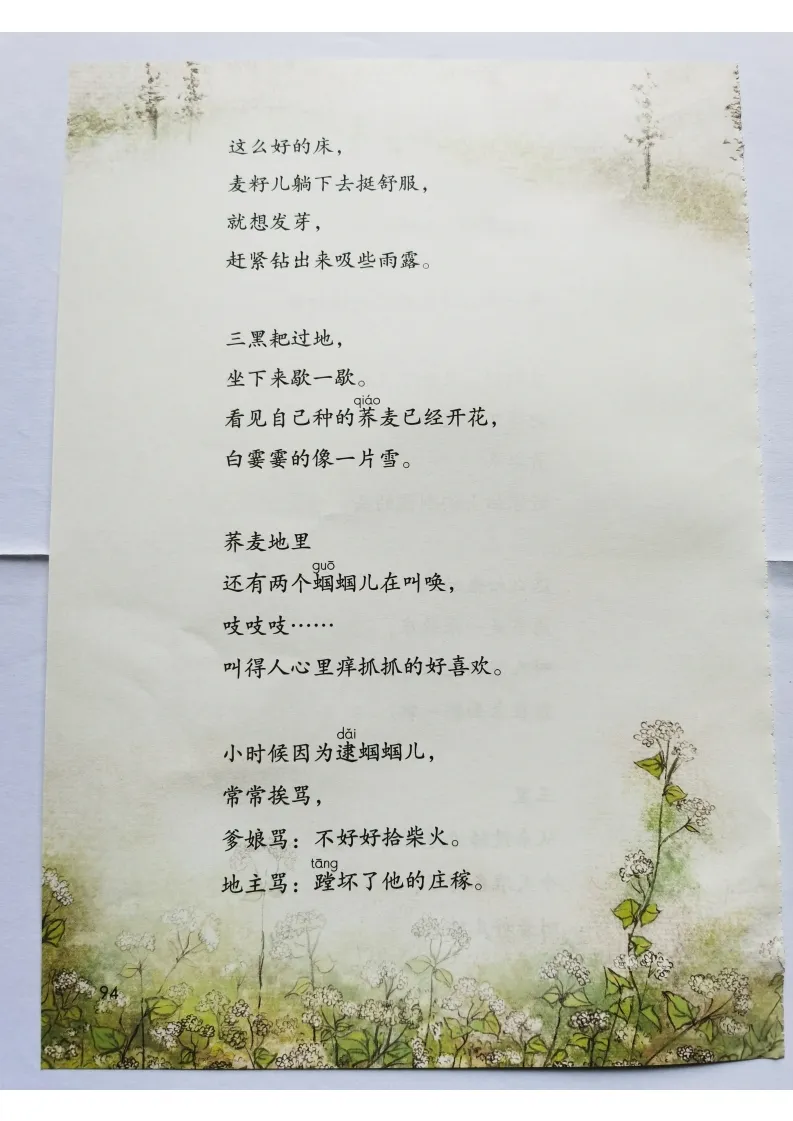 这么好的床，
麦籽儿躺下去挺舒服，
就想发芽，
赶紧钻出来吸些雨露。
三黑耙过地，
坐下来歇一歇。
qiáo
看见自己种的荞麦已经开花，
白霎霎的像一片雪。
荞麦地里
guō
还有两个蝈蝈儿在叫唤，
吱吱吱……
叫得人心里痒抓抓的好喜欢。
dǎi
小时候因为逮蝈蝈儿，
常常挨骂，
爹娘骂：不好好拾柴火。
tāng
地主骂：蹚坏了他的庄稼。
94